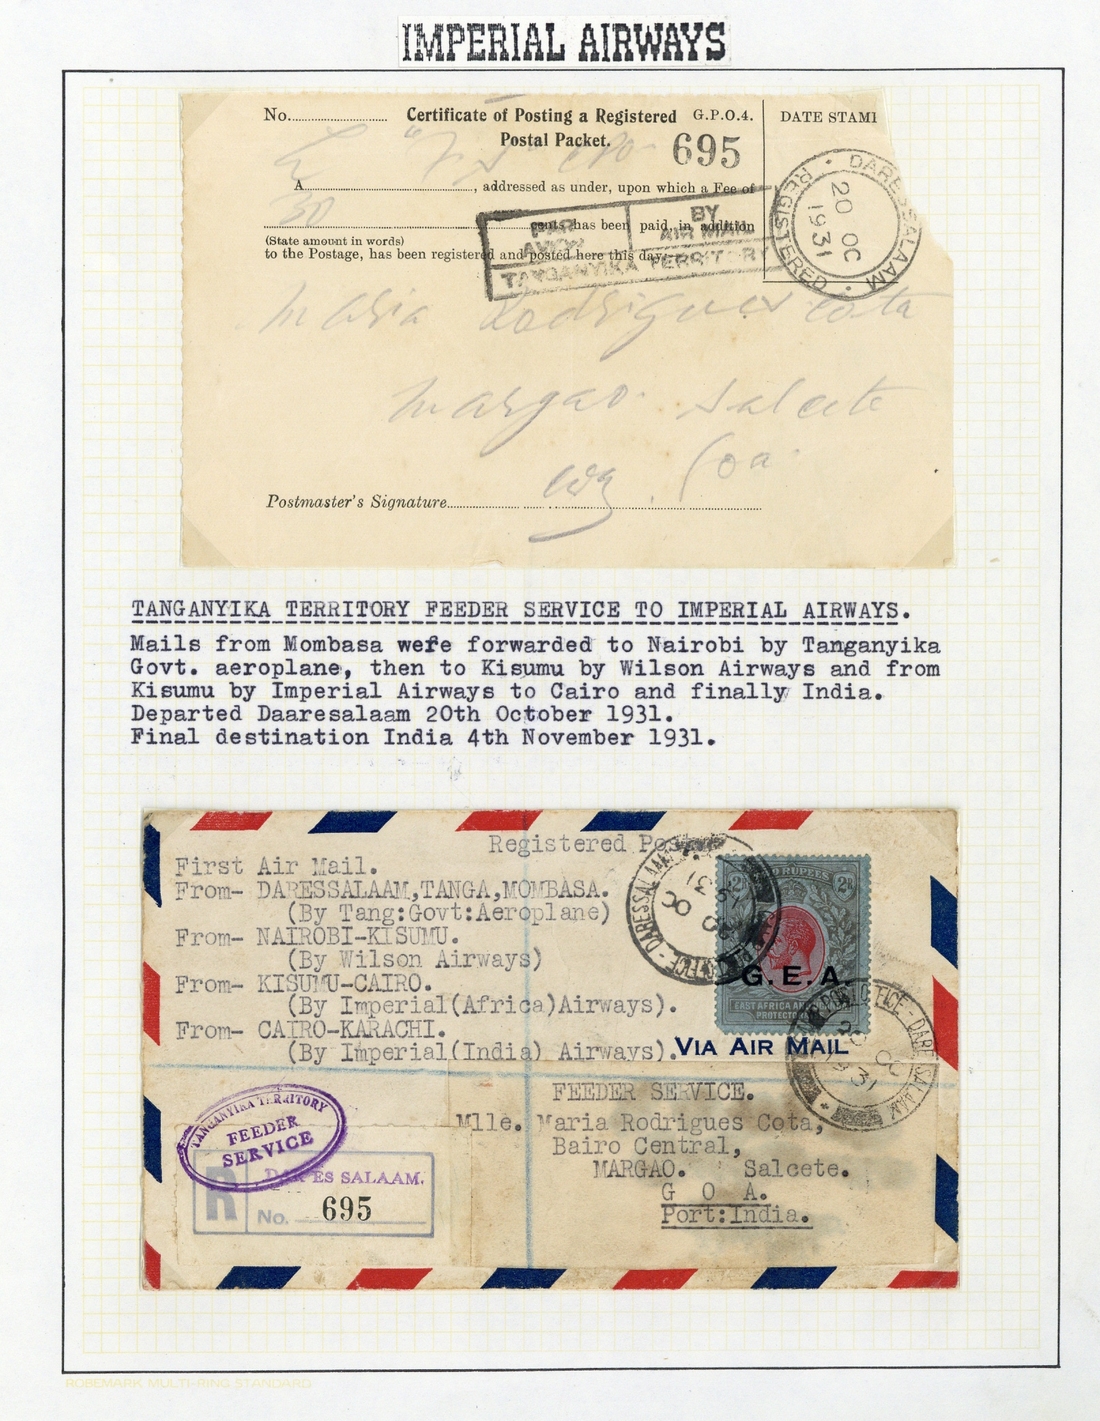 IMPERIAL AIRWAYS
No. Certificate of Posting a Registered G.P.O.4. DATE STAM
Postal Packet. 695
A , addressed as under, upon which a Fee of
30
cents has been paid, in addition
(State amount in words)
to the Postage, has been registered and posted here this day.
PAR AVION BY AIR MAIL
TANGANYIKA TERRITORY
DARESSALAAM
20 OC
1931
REGISTERED
Maria Rodrigues Cota
Margao. Salcete
Goa
Postmaster's Signature
TANGANYIKA TERRITORY FEEDER SERVICE TO IMPERIAL AIRWAYS.
Mails from Mombasa were forwarded to Nairobi by Tanganyika
Govt. aeroplane, then to Kisumu by Wilson Airways and from
Kisumu by Imperial Airways to Cairo and finally India.
Departed Daaresalaam 20th October 1931.
Final destination India 4th November 1931.
Registered Post
First Air Mail.
From- DARESSALAAM,TANGA,MOMBASA.
(By Tang:Govt:Aeroplane)
From- NAIROBI-KISUMU.
(By Wilson Airways)
From- KISUMU-CAIRO.
(By Imperial(Africa)Airways).
From- CAIRO-KARACHI.
(By Imperial(India) Airways).
VIA AIR MAIL
2R RUPEES 2R
G.E.A.
EAST AFRICA AND
OFFICE - DARESSALAAM
OC
31
OFFICE - DARESSALAAM
20 OC
31
TANGANYIKA TERRITORY
FEEDER
SERVICE
R
DAR ES SALAAM.
No. 695
FEEDER SERVICE.
Mlle. Maria Rodrigues Cota,
Bairo Central,
MARGAO. Salcete.
G O A.
Port:India.
ROBEMARK MULTI-RING STANDARD